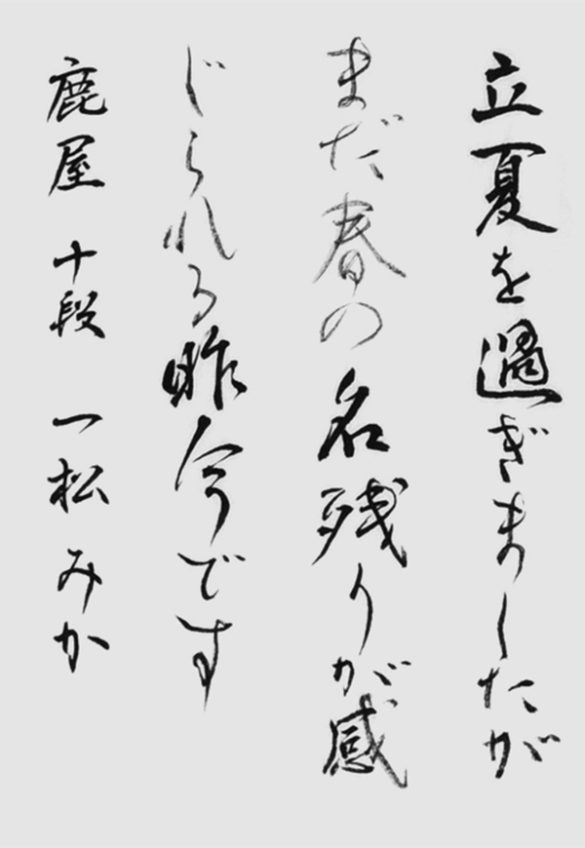 立夏を過ぎましたが
まだ春の名残りが感
じられる昨今です
鹿屋 十段 一松 みか